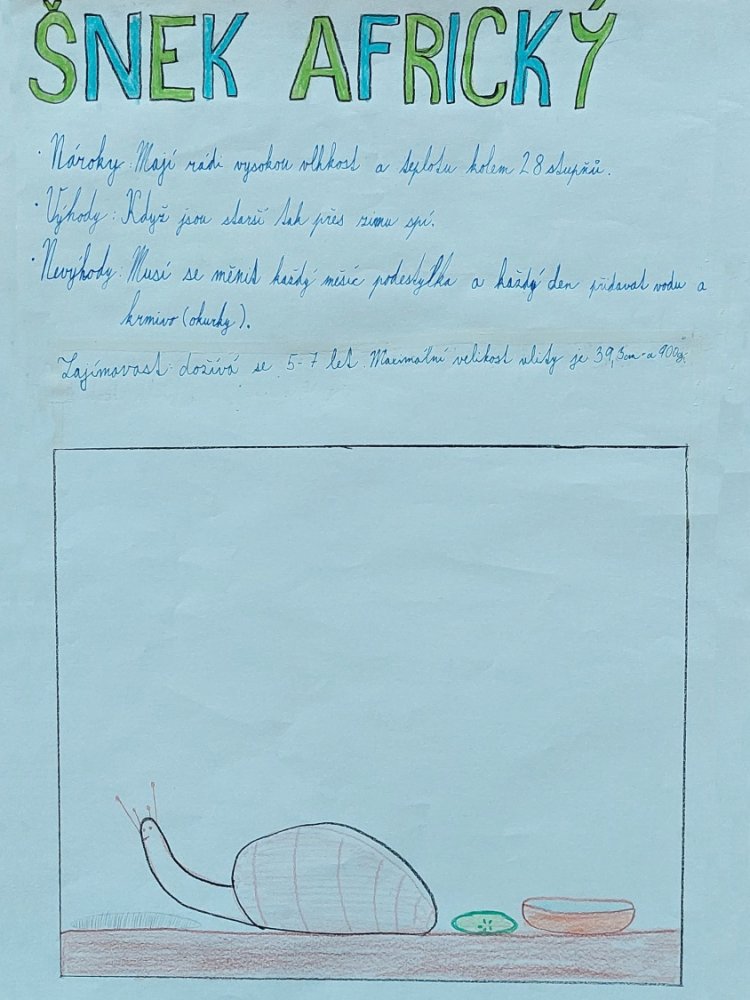 ŠNEK AFRICKÝ
· Nároky: Mají rádi vysokou vlhkost a teplotu kolem 28 stupňů.
· Výhody: Když jsou starší tak přes zimu spí.
· Nevýhody: Musí se měnit každý měsíc podestýlka a každý den přidavat vodu a
krmivo (okurky).
Zajímavost: dožívá se 5-7 let. Maximální velikost ulity je 39,3cm a 900g.